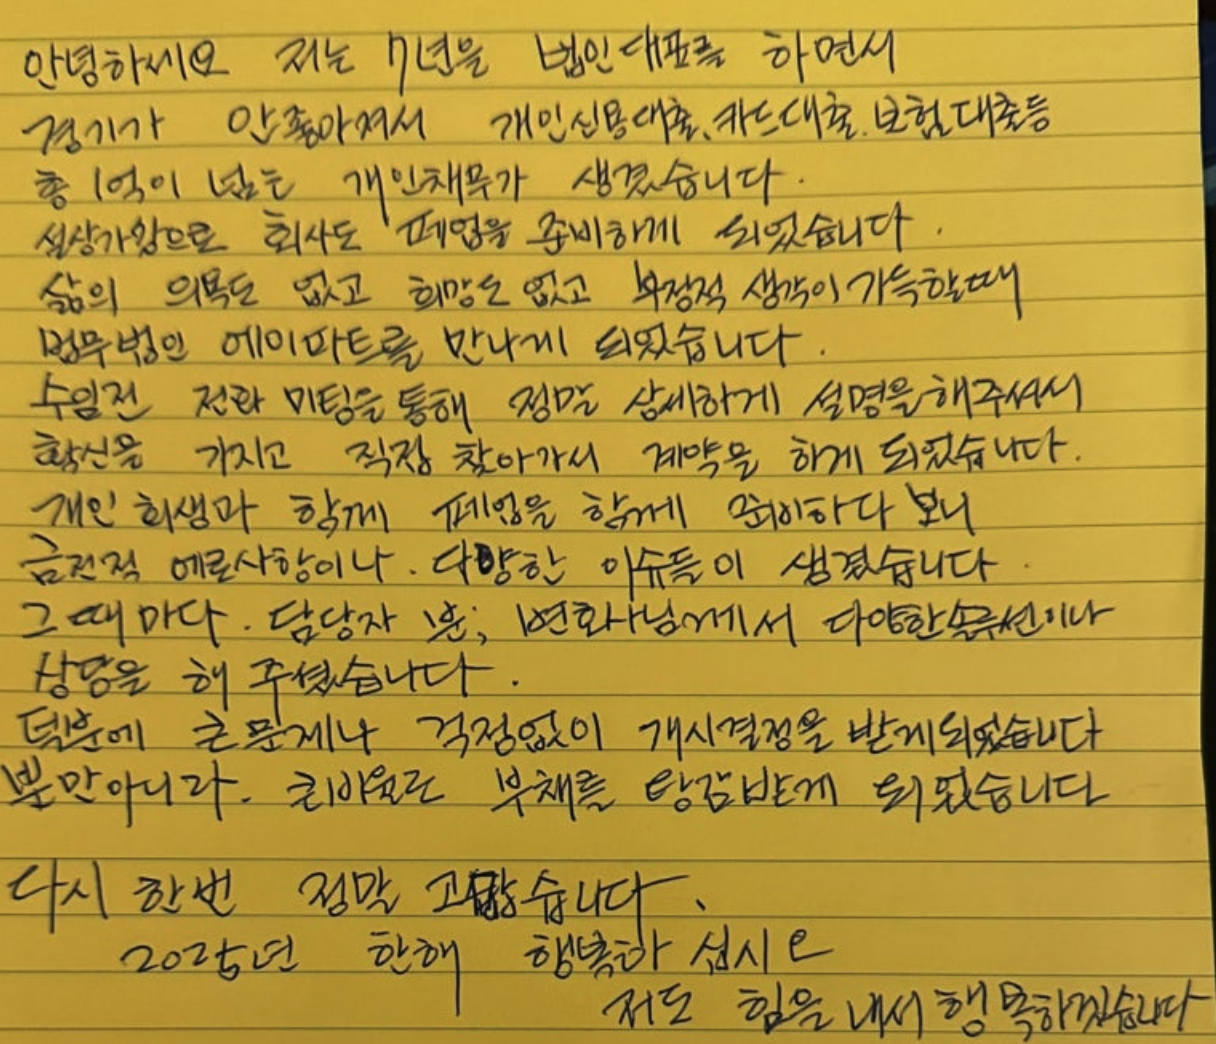 안녕하세요 저는 7년을 법인대표를 하면서
경기가 안좋아져서 개인신용대출, 카드대출, 보험대출등
총 1억이 넘는 개인채무가 생겼습니다.
설상가상으로 회사도 폐업을 준비하게 되었습니다.
삶의 의욕도 없고 희망도 없고 부정적 생각이 가득할때
법무법인 에이파트를 만나게 되었습니다.
수임전 전화 미팅을 통해 정말 상세하게 설명을 해주셔서
확신을 가지고 직접 찾아가서 계약을 하게 되었습니다.
개인회생과 함께 폐업을 함께 하다 보니
금전적 에로사항이나. 다양한 이슈들이 생겼습니다.
그때마다. 담당자 분, 변호사님께서 다양한 솔루션이나
상담을 해 주셨습니다.
덕분에 큰 문제나 걱정없이 개시결정을 받게되었습니다
뿐만아니라. 큰비율로 부채를 탕감받게 되었습니다
다시 한번 정말 고맙습니다.
2025년 한해 행복하십시오
저도 힘을 내서 행복하겠습니다